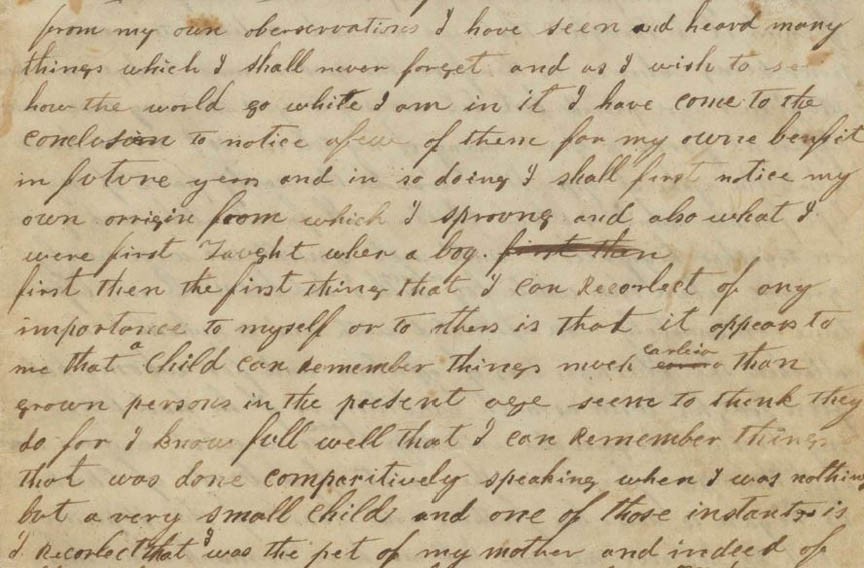 from my own oberservations I have seen and heard many
things which I shall never forget and as I wish to see
how the world go while I am in it I have come to the
conclusion to notice a few of them for my owne benfit
in future years and in so doing I shall first notice my
own orrigin from which I sproung and also what I
were first Taught when a boy. first then
first then the first thing that I can Recorlect of any
importance to myself or to others is that it appears to
me that a Child can Remember things much earlier than
grown persons in the present age seem to think they
do for I know full well that I can Remember things
that was done comparitively speaking when I was nothing
but a very small Child and one of those instants is
I Recorlect that I was the pet of my mother and indeed of